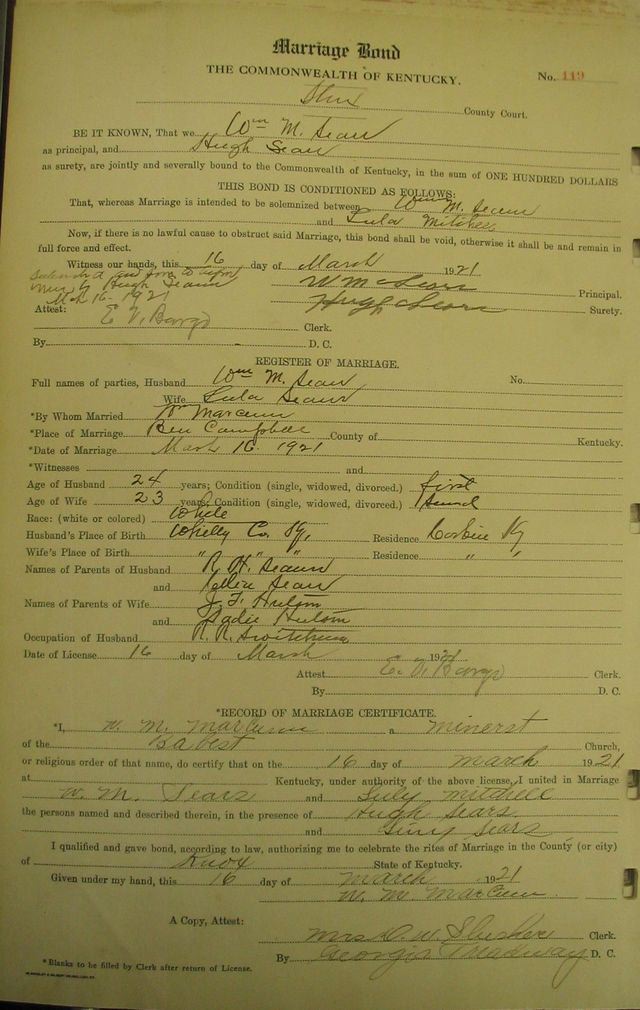 Marriage Bond
THE COMMONWEALTH OF KENTUCKY.
No. 119
County Court.
BE IT KNOWN, That we Wm M. Sears
as principal, and Hugh Sears
as surety, are jointly and severally bound to the Commonwealth of Kentucky, in the sum of ONE HUNDRED DOLLARS
THIS BOND IS CONDITIONED AS FOLLOWS:
That, whereas Marriage is intended to be solemnized between Wm M. Sears
and Lula Mitchell
Now, if there is no lawful cause to obstruct said Marriage, this bond shall be void, otherwise it shall be and remain in
full force and effect.
Witness our hands, this 16 day of March 1921
by Hugh Sears
Mch 16-1921
W M Sears Principal.
Hugh Sears Surety.
Attest: E. V. Bargo Clerk.
By - D. C.
REGISTER OF MARRIAGE.
Full names of parties, Husband Wm M. Sears No.
Wife Lula Sears
*By Whom Married Wm Marcum
*Place of Marriage Ben Campbell County of Kentucky.
*Date of Marriage March 16. 1921
*Witnesses and
Age of Husband 24 years; Condition (single, widowed, divorced.) first
Age of Wife 23 years; Condition (single, widowed, divorced.) second
Race: (white or colored) White
Husband's Place of Birth Whitley Co. Ky, Residence Corbin Ky
Wife's Place of Birth " " " Residence " "
Names of Parents of Husband R. H. Sears
and Sears
Names of Parents of Wife J. F.
and Sadie
Occupation of Husband R. R. Switchman
Date of License 16 day of March 1921
Attest E. V. Bargo Clerk.
By D. C.
*RECORD OF MARRIAGE CERTIFICATE.
*I, W. M. Marcum a minerst
of the Babest Church,
or religious order of that name, do certify that on the 16 day of march 1921
at Kentucky, under authority of the above license, I united in Marriage
W. M. Sears and Luly mitchell
the persons named and described therein, in the presence of Hugh Sears
and Sears
I qualified and gave bond, according to law, authorizing me to celebrate the rites of Marriage in the County (or city)
of Knox State of Kentucky.
Given under my hand, this 16 day of march 1921
W. M. Marcum
A Copy, Attest:
Mrs D. W. Clerk.
By Georgia D. C.
*Blanks to be filled by Clerk after return of License.